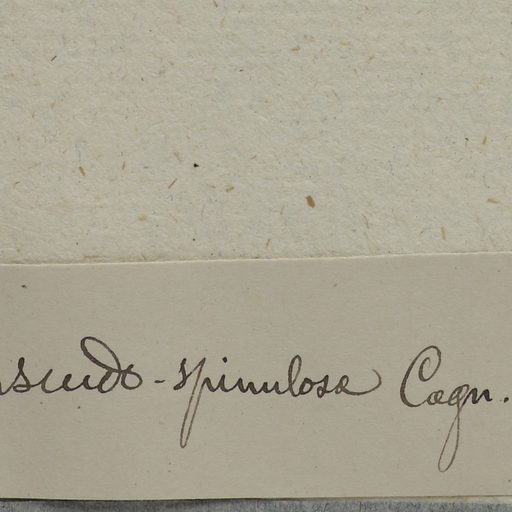 pseudo-spinulosa Cogn.